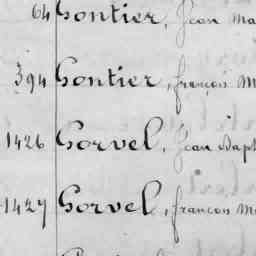 64 Gontier, Jean Ma
394 Gontier, françois M
1426 Gorvel, Jean Bapt
1427 Gorvel, françois Ma